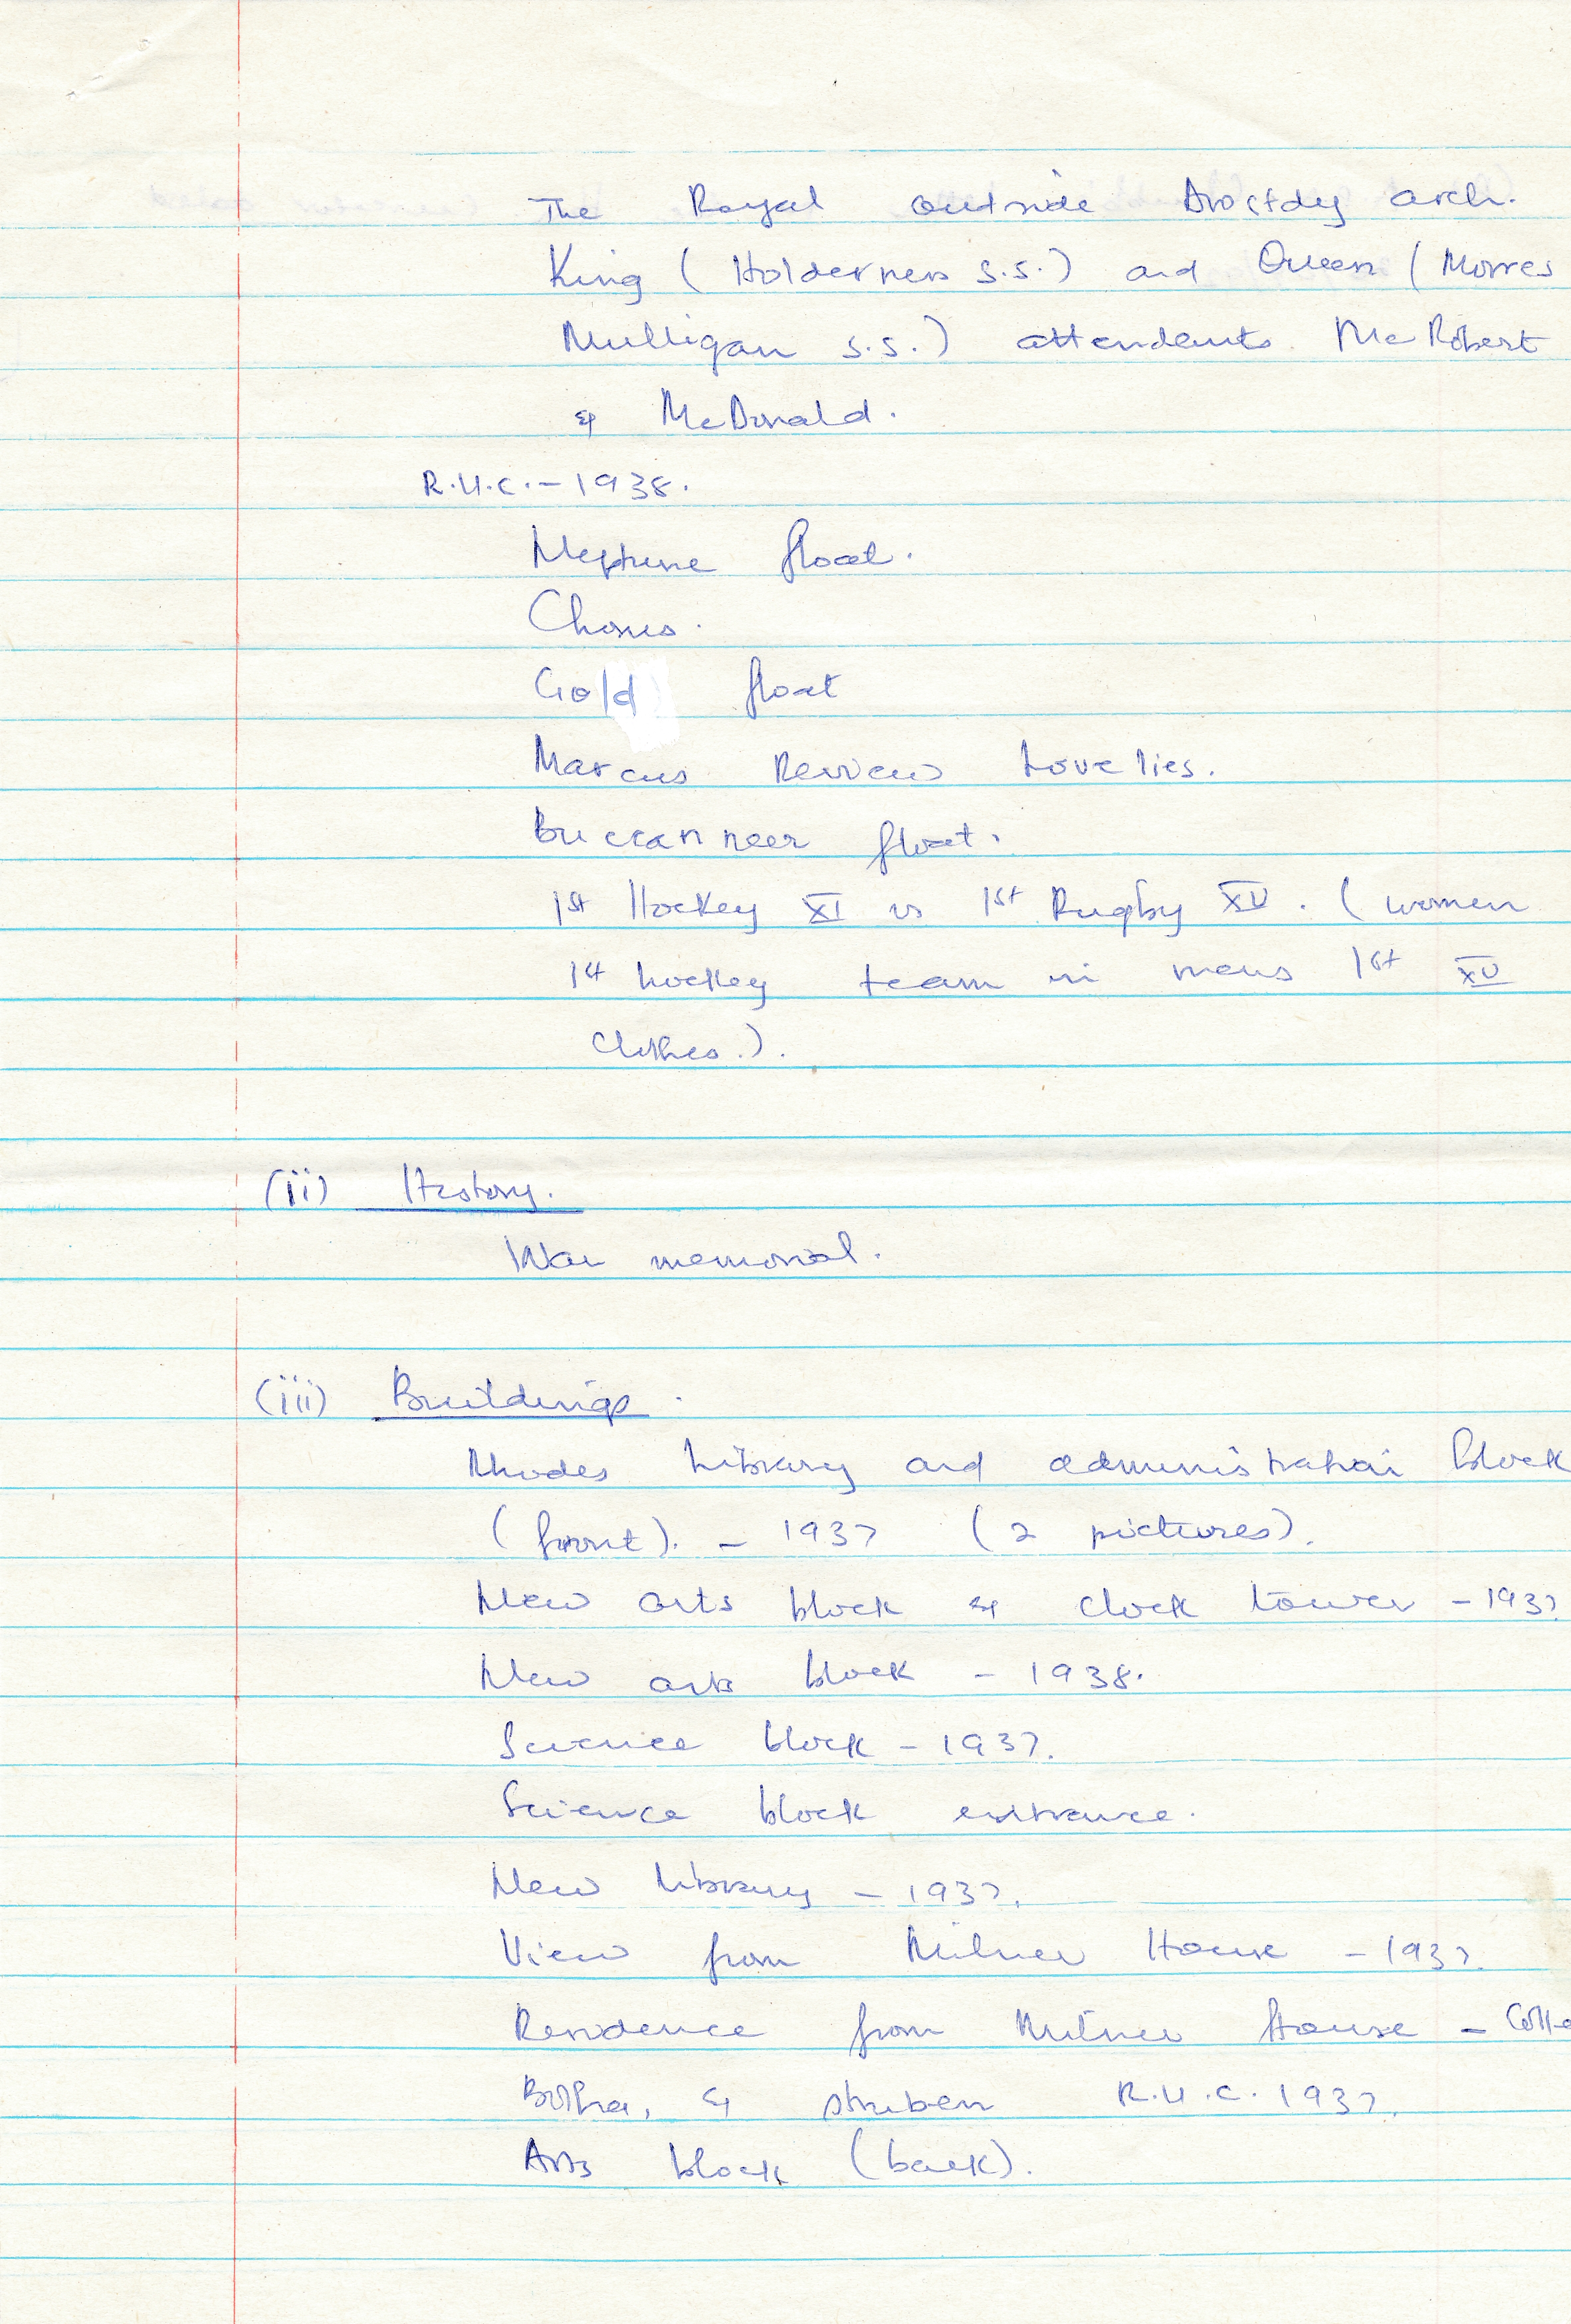 The Royal outside Drostdy arch.
King (Holderness S.S.) and Queen (Morres
Mulligan S.S.) attendants McRobert
& McDonald.
R.U.C. - 1938.
Neptune float.
Chorus.
Gold float
Marcus Review Lovelies.
Buccanneer float.
1st Hockey XI vs 1st Rugby XV. (women
1st hockey team in mens 1st XV
clothes.).
(ii) History.
War memorial.
(iii) Buildings.
Rhodes Library and administration block
(front). - 1937 (2 pictures).
New arts block & clock tower - 1937
New arts block - 1938.
Science block - 1937.
Science block entrance.
New library - 1937.
View from Milner House - 1937.
Residence from Milner House -
Botha, & Struben R.U.C. 1937.
Arts block (back).